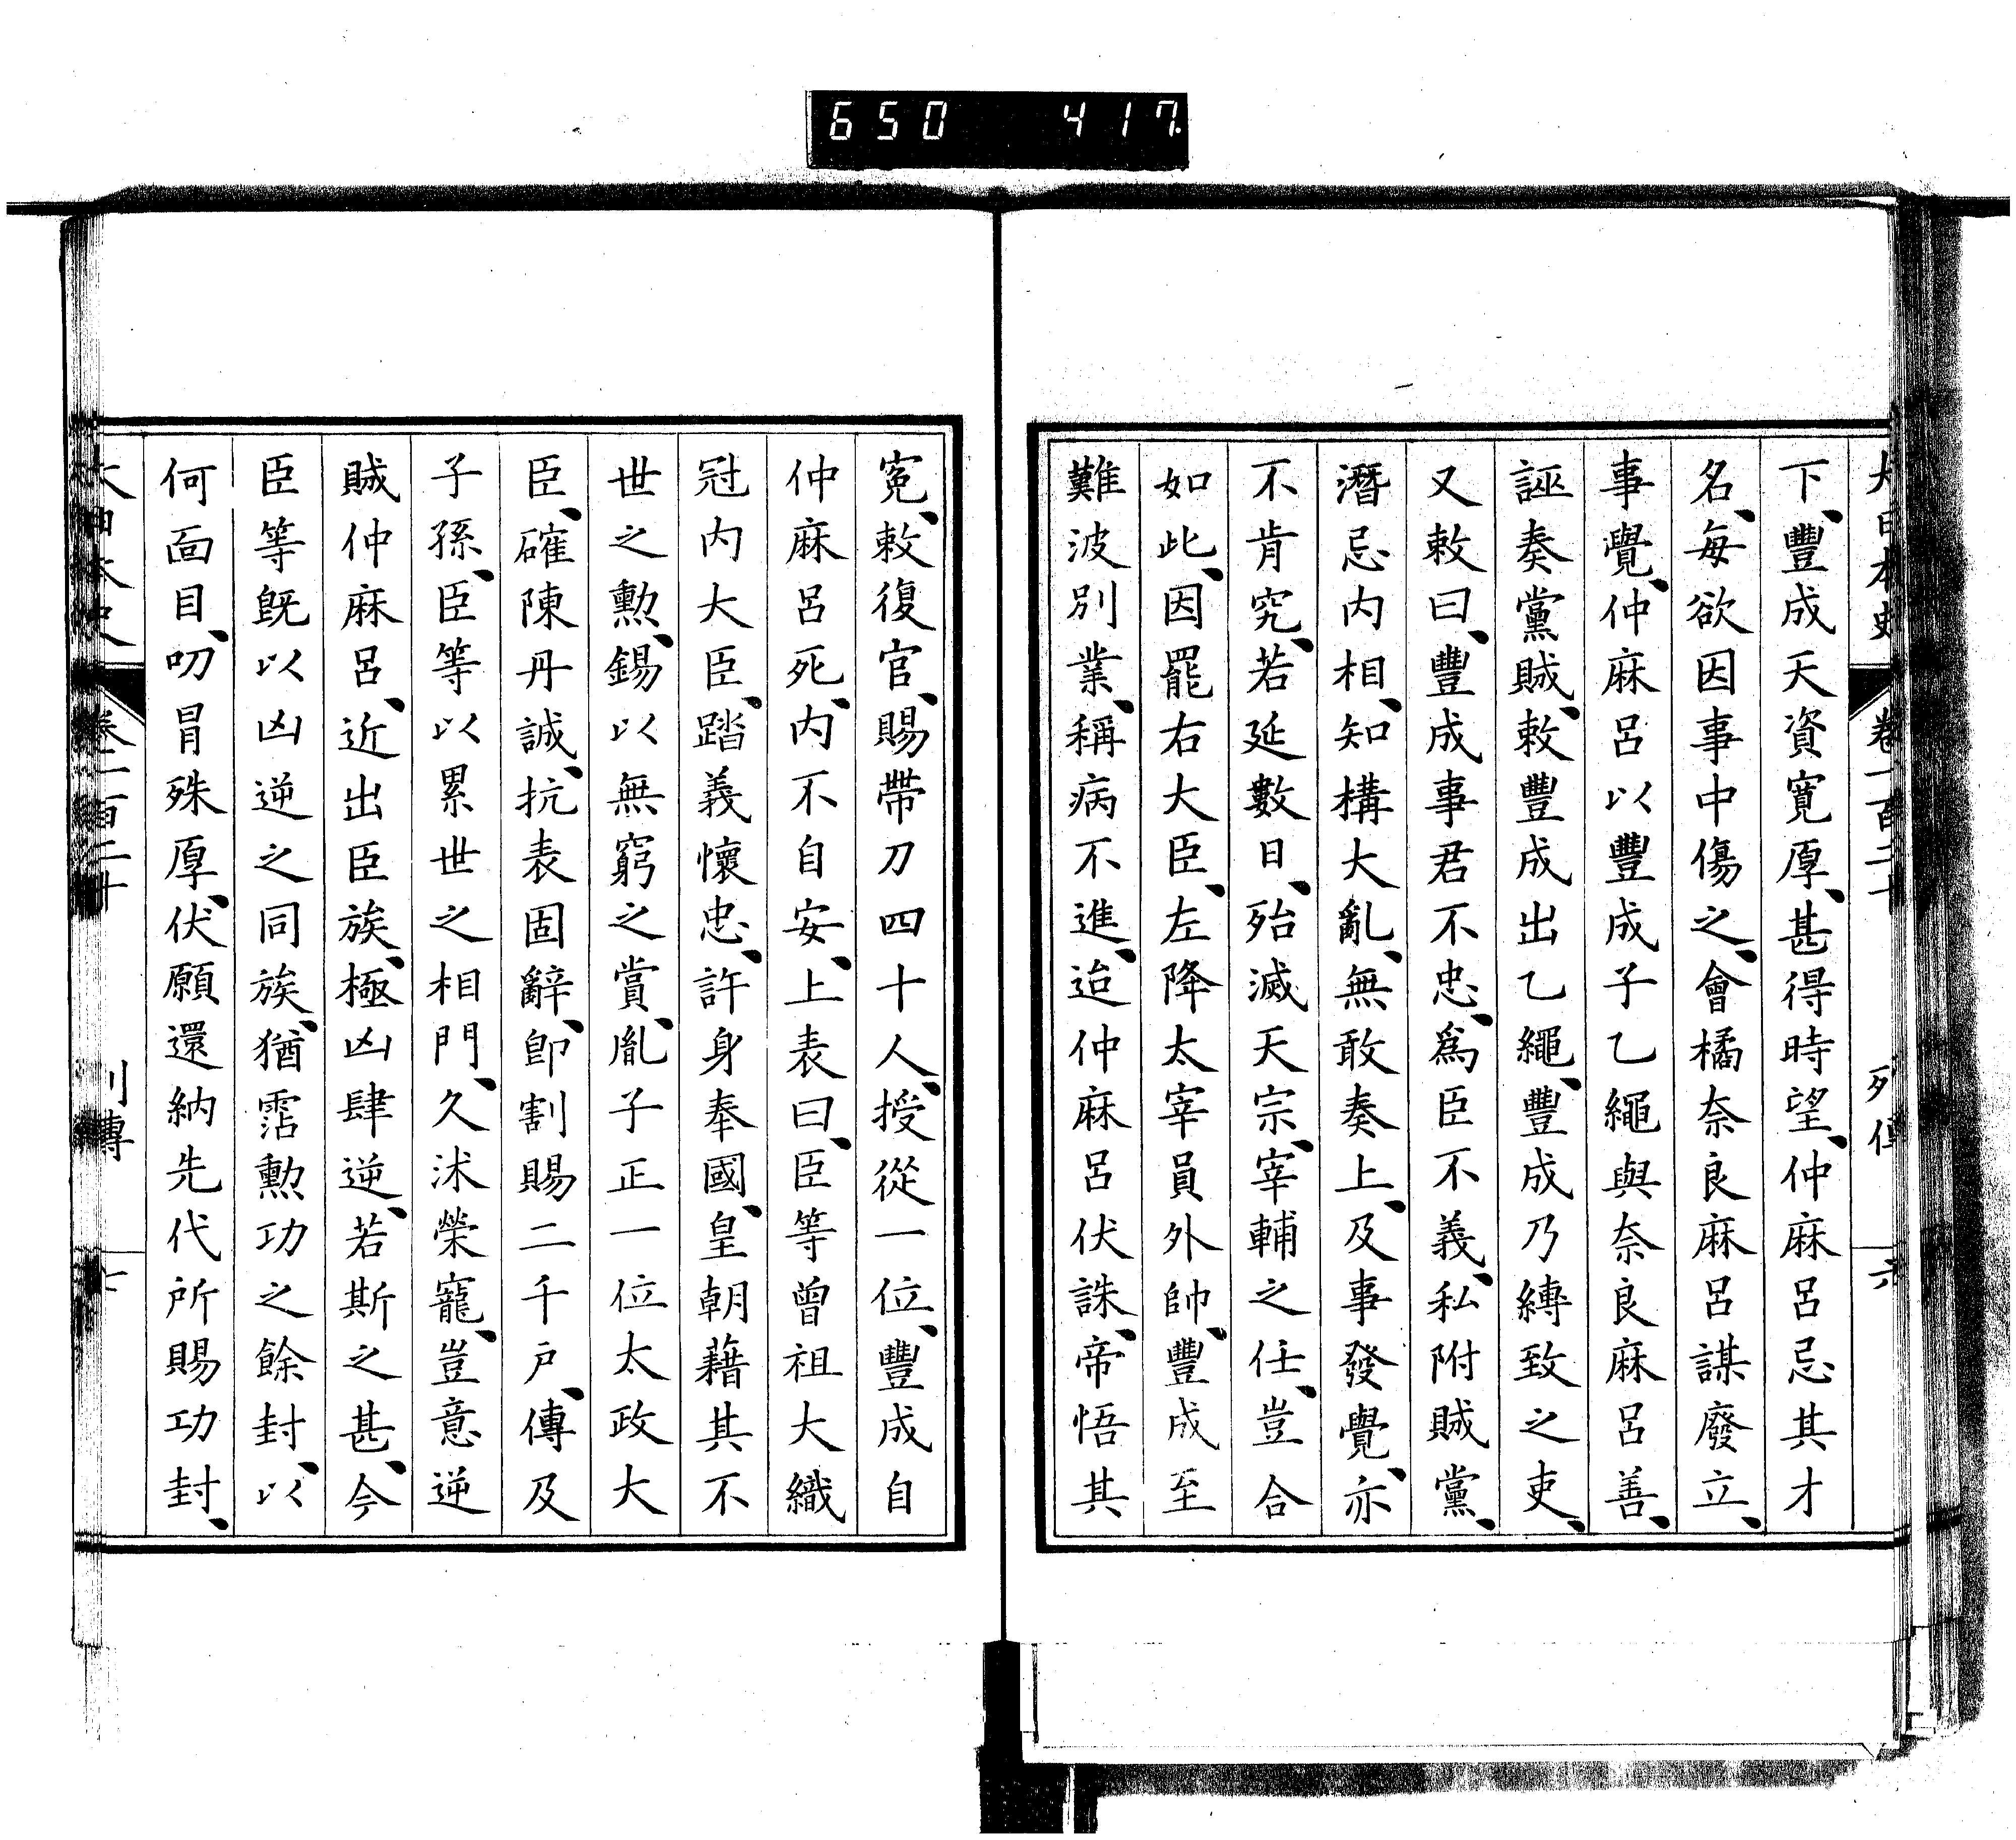 650 417
大日本史 卷一百二十 列傳 六
下、豐成天資寬厚、甚得時望、仲麻呂忌其才
名、每欲因事中傷之、會橘奈良麻呂謀廢立、
事覺、仲麻呂以豐成子乙繩與奈良麻呂善、
誣奏黨賊、敕豐成出乙繩、豐成乃縛致之吏、
又敕曰、豐成事君不忠、爲臣不義、私附賊黨、
潛忌內相、知構大亂、無敢奏上、及事發覺、亦
不肯究、若延數日、殆滅天宗、宰輔之任、豈合
如此、因罷右大臣、左降太宰員外帥、豐成至
難波別業、稱病不進、迨仲麻呂伏誅、帝悟其
冤、敕復官、賜帶刀四十人、授從一位、豐成自
仲麻呂死、內不自安、上表曰、臣等曾祖大織
冠內大臣、踏義懷忠、許身奉國、皇朝藉其不
世之勲、錫以無窮之賞、胤子正一位太政大
臣、確陳丹誠、抗表固辭、卽割賜二千戶、傳及
子孫、臣等以累世之相門、久沐榮寵、豈意逆
賊仲麻呂、近出臣族、極凶肆逆、若斯之甚、今
臣等既以凶逆之同族、猶霑勲功之餘封、以
何面目、叨冒殊厚、伏願還納先代所賜功封、
大日本史 卷一百二十 列傳 七